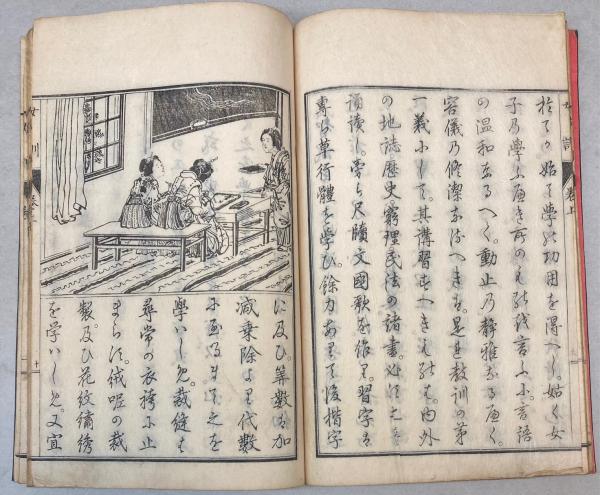 於てか始て學の功用を得べし姑く女
子の學ふべき所のものを言ふに言語
の温和なるべく。動止の靜雅なるべく。
容儀の修潔なるべきは。是其教訓の第
一義にして。其講習すべきものは。内外
の地誌歴史窮理民法の諸書。必須之を
誦讀し。旁ら尺牘文國歌を作り。習字は
專ら草行體を學び。餘力あらは後楷字
に及ひ。算數は加
減乗除より代數
に至るまて之を
學はしめ。裁縫は
尋常の衣袴に止
まらす。絨呢の裁
製及ひ花紋繍綉
を学はしめ。又宜
女訓
卷上